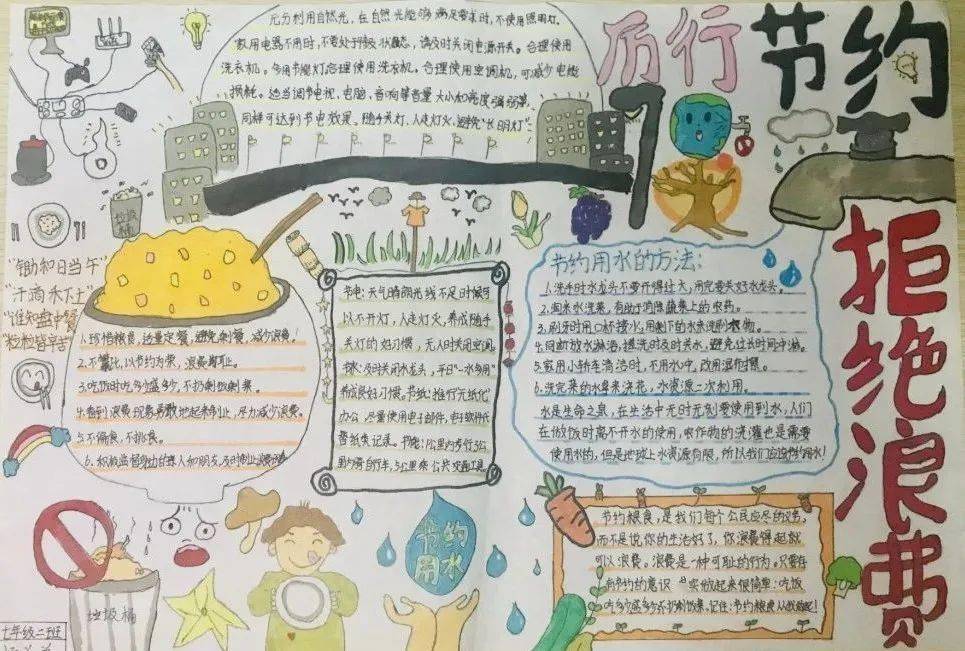 厉行
节约
拒绝浪费
充分利用自然光，在自然光能够满足要求时，不使用照明灯。
家用电器不用时，不要处于待机状态，请及时关闭电源开关。合理使用
洗衣机。多用节能灯合理使用洗衣机。合理使用空调机，可减少电能
损耗。适当调节电视、电脑、音响等音量大小和亮度强弱等，
同样可达到节电效果。随手关灯，人走灯灭，避免"长明灯"
垃圾桶
"锄禾日当午"
"汗滴禾下土
"谁知盘中餐
"粒粒皆辛苦
1.珍惜粮食，适量定餐，避免剩餐，减少浪费！
2.不攀比，以节约为荣，浪费为耻。
3.吃饭时吃多少盛多少，不扔剩饭剩菜。
4.看到浪费现象勇敢地起来制止，尽力减少浪费。
5.不偏食，不挑食。
6.积极监督身边的亲人和朋友，及时制止浪费
节电：天气晴朗光线不足时候可
以不开灯，人走灯灭，养成随手
关灯的好习惯，无人时关闭空调
节水：及时关闭水龙头，开启"一水多用"
养成良好习惯。节纸：推行无纸化
办公，尽量使用电子邮件，电子软件代
替纸类记录。节能：1公里内步行，3公
里内骑自行车，5公里乘公共交通工具
节约用水的方法：
1.洗手时水龙头不要开得过大，用完要关好水龙头。
2.淘米水洗菜，有助于消除蔬菜上的农药。
3.刷牙时用口杯接水，用剩下的水来洗刷
4.间断放水淋浴，搓洗时及时关水，避免过长时间冲淋。
5.家用小轿车清洁时，不用水冲，改用湿布擦。
6.洗完菜的水拿来浇花，水资源二次利用。
水是生命之泉，在生活中无时无刻要使用到水，人们
在做饭时离不开水的使用，农作物的浇灌也是需要
使用水的，但是地球上水资源有限，所以我们应该节约用水！
节约粮食，是我们每个公民应尽的义务，
而不是说你的生活好了，你浪费得起就
可以浪费。浪费是一种可耻的行为，只要存
有节约的意识，其实做起来很简单：吃饭
吃多少盛多少不扔剩饭菜。记住：节约粮食从我做起！
节约
用水
垃圾桶
七年级二班